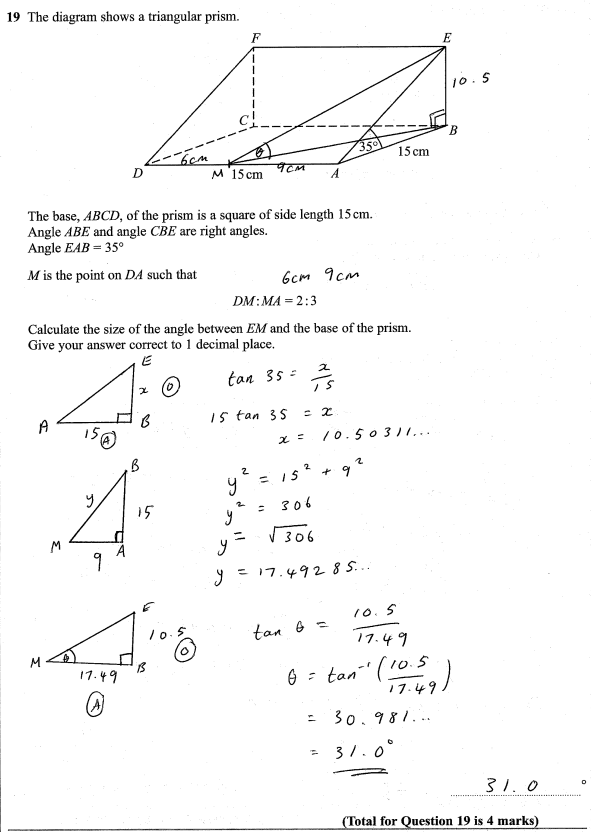 19 The diagram shows a triangular prism.
F
E
10.5
C
B
35°
15 cm
6cm
θ
9cm
D
M
15 cm
A
The base, ABCD, of the prism is a square of side length 15 cm.
Angle ABE and angle CBE are right angles.
Angle EAB = 35°
M is the point on DA such that
6cm 9cm
DM : MA = 2 : 3
Calculate the size of the angle between EM and the base of the prism.
Give your answer correct to 1 decimal place.
E
x O
A
15 A
B
tan 35 = x/15
15 tan 35 = x
x = 10.50311...
B
y
15
M
9
A
y² = 15² + 9²
y² = 306
y = √306
y = 17.49285...
E
10.5 O
M
θ
17.49
B
A
tan θ = 10.5/17.49
θ = tan⁻¹(10.5/17.49)
= 30.981...
= 31.0°
31.0 °
(Total for Question 19 is 4 marks)